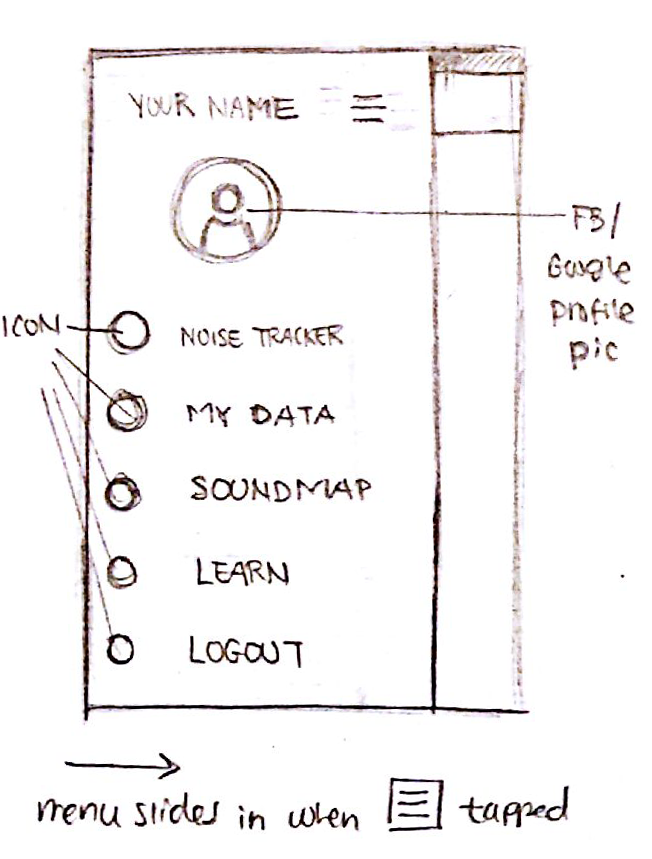 YOUR NAME
FB/
Google
profile
pic
ICON
NOISE TRACKER
MY DATA
SOUNDMAP
LEARN
LOGOUT
menu slides in when tapped